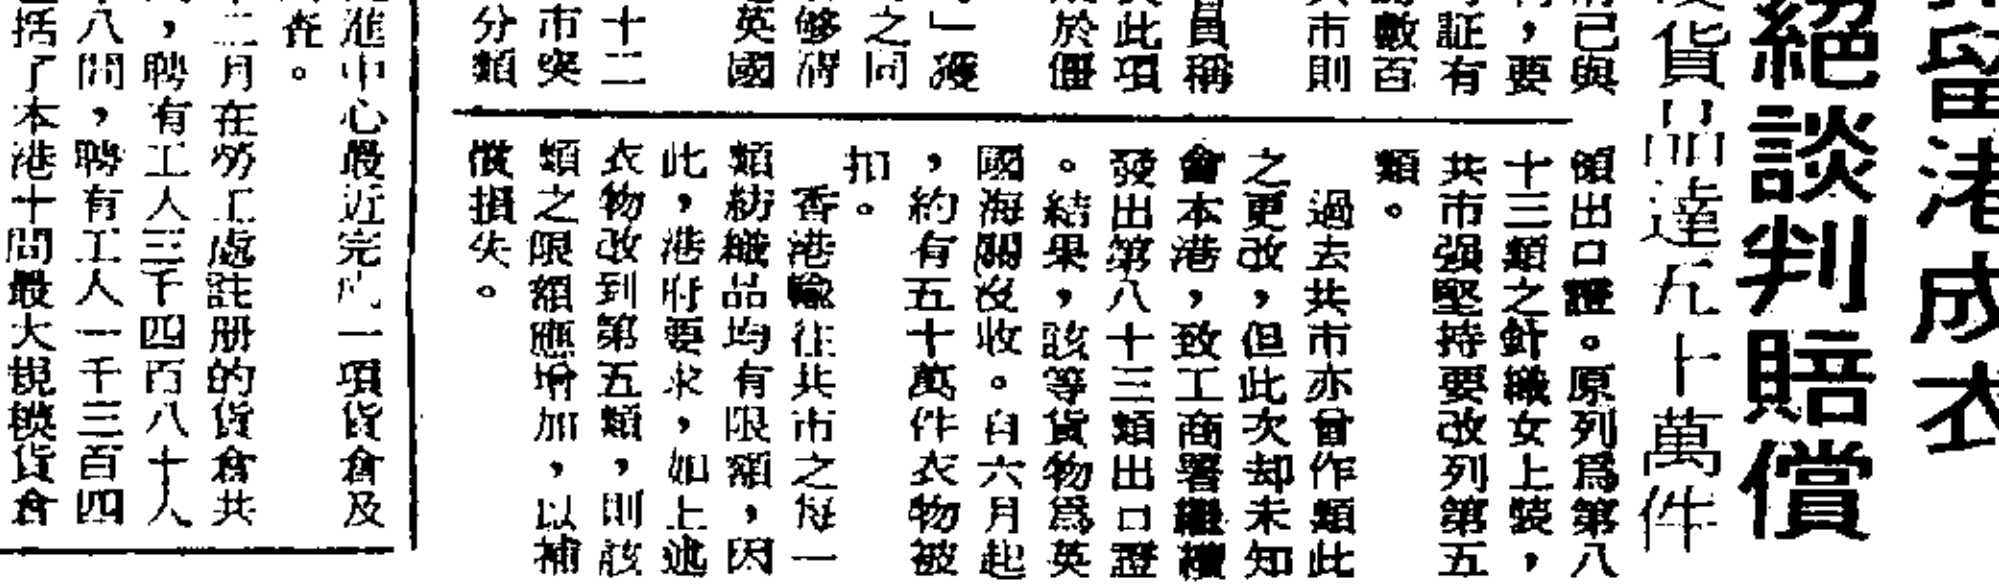 留港成衣
絕談判賠償
貨品達九十萬件
己與
，要
証有
數百
市則
員稱
此項
於僵
」獲
之同
够得
英國
十二
市突
分類
頒出口證。原列爲第八
十三類之針織女上裝，
共市强堅持要改列第五
類。
過去共市亦曾作類此
之更改，但此次却未知
會本港，致工商署繼續
發出第八十三類出口證
。結果，該等貨物爲英
國海關沒收。自六月起
，約有五十萬件衣物被
扣。
香港輸往共市之每一
類紡織品均有限額，因
此，港府要求，如上述
衣物改到第五類，則該
類之限額應增加，以補
償損失。
進中心最近完成一項貨倉及
查。
二月在勞工處註册的貨倉共
，聘有工人三千四百八十人
八間，聘有工人一千三百四
括了本港十間最大規模貨倉